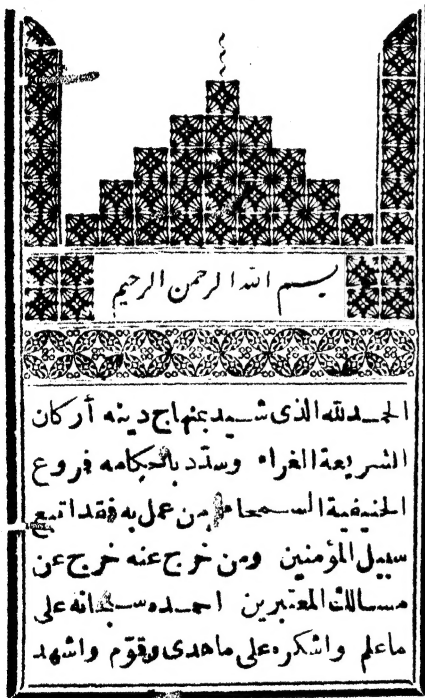 بسم الله الرحمن الرحيم
الحمد لله الذى شيد بمنهاج دينه أركان
الشريعة الغراء وسدد باحكامه فروع
الحنيفية السمحاء من عمل به فقد اتبع
سبيل المؤمنين ومن خرج عنه خرج عن
مسالك المعتبرين احمده سبحانه على
ما علم واشكره على ما هدى وقوّم واشهد